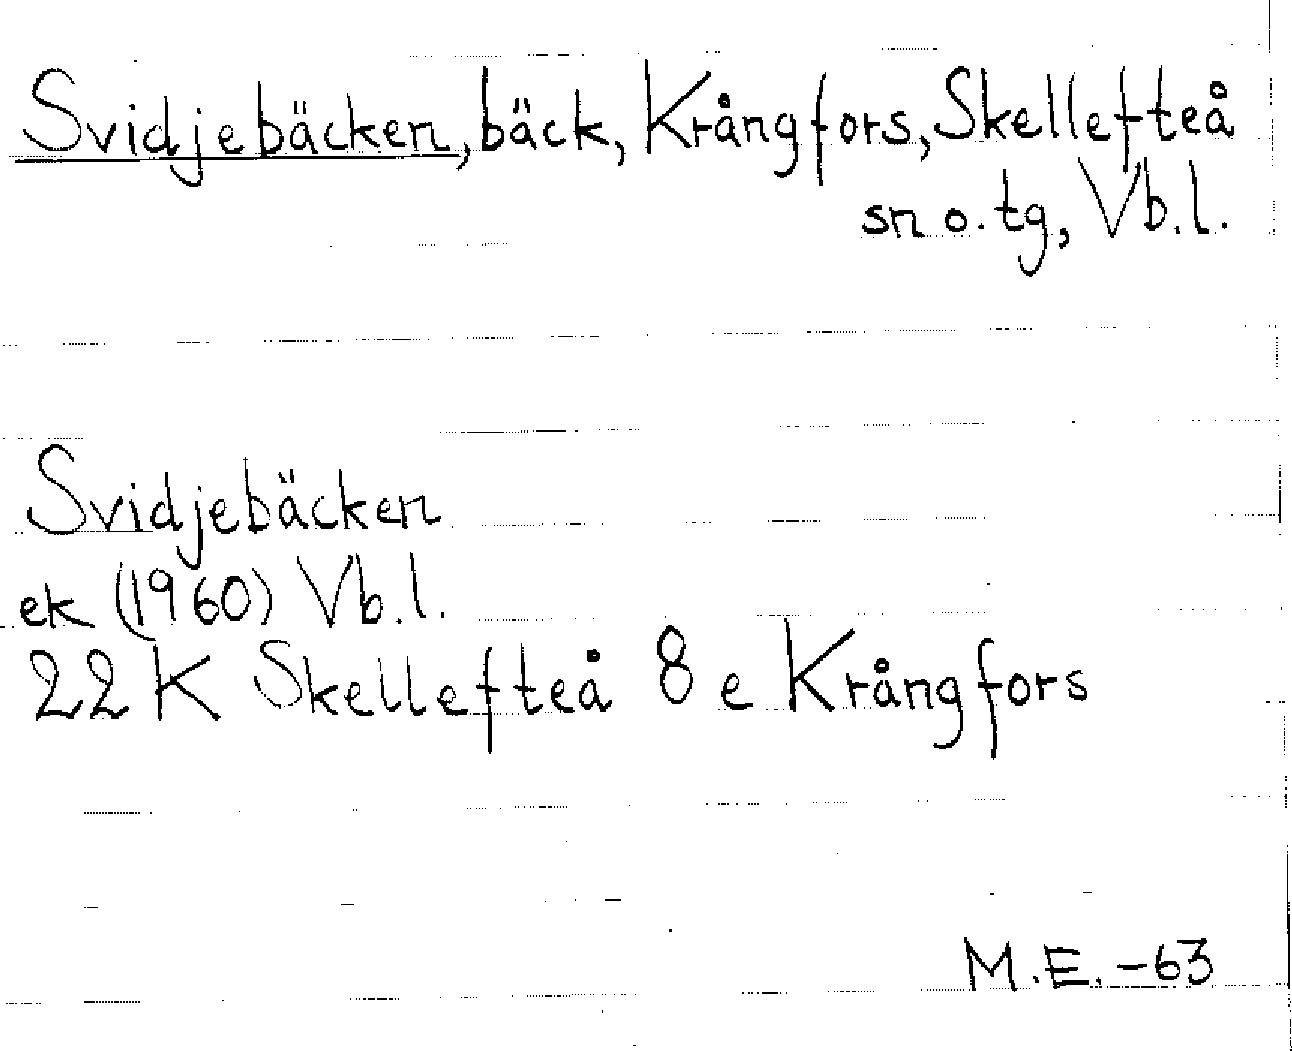 Svidjebäcken, bäck, Krångfors, Skellefteå
sn o. tg, Vb.l.
Svidjebäcken
ek (1960) Vb.l.
22 K Skellefteå 8 e Krångfors
M.E. -63